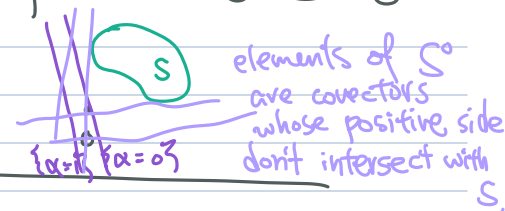 S
elements of S°
are covectors
whose positive side
don't intersect with
S.
{α=0}